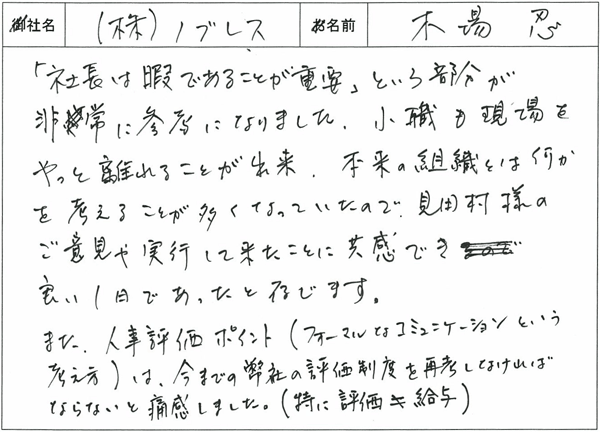 御社名 (株)ノブレス お名前 木場 忍
「社長は暇であることが重要」という部分が
非常に参考になりました。小職も現場を
やっと離れることが出来、本来の組織とは何か
を考えることが多くなっていたので、見田村様の
ご意見や実行して来たことに共感でき
良い1日であったと存じます。
また、人事評価ポイント(フォーマルなコミュニケーションという
考え方)は、今までの弊社の評価制度を再考しなければ
ならないと痛感しました。(特に評価≠給与)